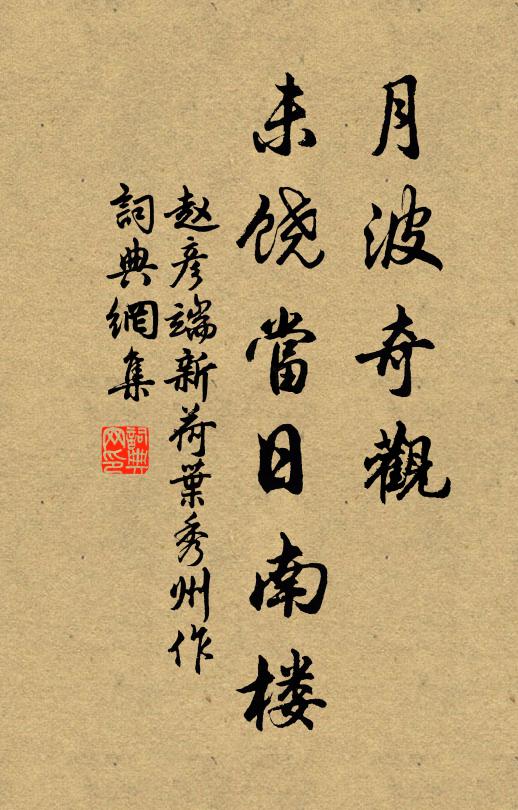 月波奇觀
未饶當日南楼
赵彦端新荷葉秀州作
詞典網集
詞典网印